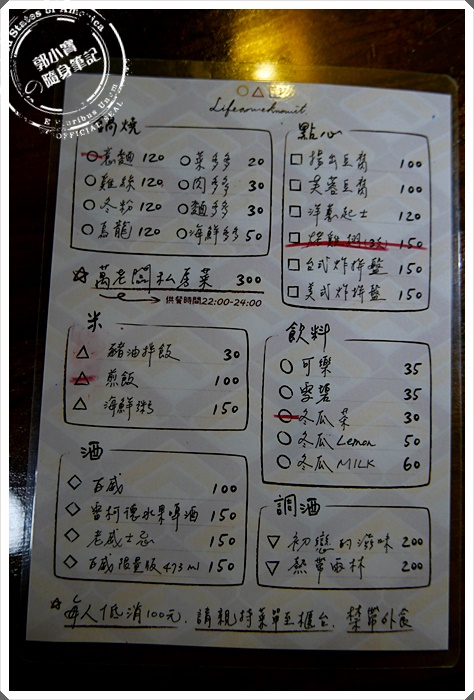 郭小寶
の隨身筆記
States of America
E Pluribus Unum
OFFICIAL
鍋燒
意麵 120
雞絲 120
冬粉 120
烏龍 120
菜多多 20
肉多多 30
麵多多 30
海鮮多多 50
萬老闆私房菜 300
供餐時間22:00-24:00
米
豬油拌飯 30
煎飯 100
海鮮粥 150
酒
百威 100
蜜柯德水果啤酒 150
老威士忌 150
百威限量版473ml 150
點心
揚出豆腐 100
芙蓉豆腐 100
洋蔥起士 120
炸雞翅 150
台式炸拼盤 150
美式炸拼盤 150
飲料
可樂 35
雪碧 35
冬瓜茶 30
冬瓜Lemon 50
冬瓜MILK 60
調酒
初戀的滋味 200
熱帶雨林 200
每人低消100元.請親持菜單至櫃台.禁帶外食